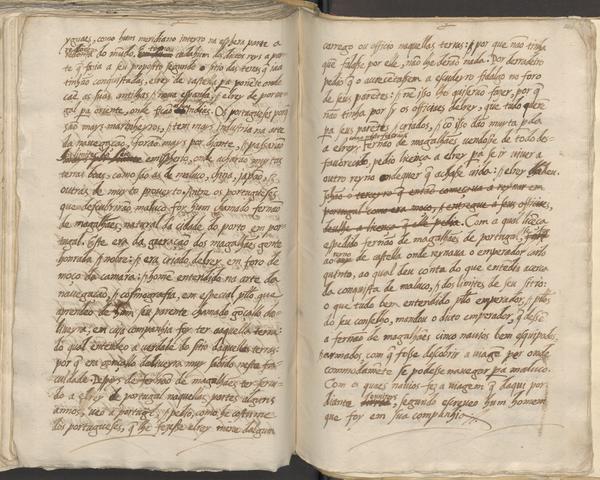 yguaes, como hum meridiano inteiro na esphera parte a
redondeza do mũdo. cada hum daquelles reys a par
te q̃ seria a seu proposito segundo o sitio das terras q̃ ia a
tinhão conquistadas, elrey de castella pa ponẽte, onde
caẽ as suas antilhas, & noua espanha, & elrey de portu
gal pa oriente, onde ficão as Indias. Os portugueses porq̃
são muy marinheyros, & tem muy industria na arte
da navegação, forão muy por diante, & passarão
emispherio, onde acharão muytas
terras boas, como são as de maluco, china, japão, &
outras de muyto proueyto. Antre os portugueses
que descubrirão maluco foy hum chamado fernão
de magalhães, natural da cidade do porto em por
tugal. Este era da geração dos magalhães gente
honrada & nobre: & era criado delrey em foro de
moço da camara: & home entendido na arte da
nauegação, & cosmografia, em especial pllo que
aprendeo de hum seu parente chamado gõçallo do
liueyra; em cuja companhia foy ter aaquella terra:
do qual entendeo a verdade do sitio daquellas terras:
por q̃ era gonçallo dolyueyra muy sabido nesta fa
culdade. Depoys de fernão de magalhães ter serui
do a elrey de portugal naquellas partes alguns
annos, veo a portugal, & pedio, como se costume
dos portugueses, q̃ lhe fezesse elrey merce dalgum
carrego ou officio naquellas terras: & por que não tinha
que falasse por elle, não lhe derão nada. Por derradeiro
pedio q̃ o acrecẽtassem a escudeyro fidalgo no foro
de seus parẽtes: & nẽ isso lhe quiserão fazer, por q̃
não tinha por sy os officiaes delrey, que tudo querẽ
pa seus parẽtes & criados, & cõ isso dão muyta pda
a elrey. fernão de magalhães vendosse de todo des
fauorecido, pedio licẽça a elrey pa se ir viuer a
outro reyno onde viuer q̃ achasse vida: & elrey
João o terceyro q̃ então começaua a reynar em
portugal como era moco, & entregue a seus officiaes,
deulhe a licẽça q̃ elle pedia. Com a qual licẽça
espedido fernão de magalhães de portugal,
ao reyno de castella onde reynaua o emperador carlo
quinto, ao qual deu conta do que entendia acerca
da conquista de maluco, & dos limites de seu sitio:
o que tudo bem entendido pllo emperador, & pllos
do seu conselho, mandou o dito emperador, q̃ dessẽ
a fernão de magalhães cinco nauios bem esquipados,
& armados, com q̃ fosse descobrir a viagẽ per onde
commodamẽte se podesse nauegar pa maluco.
Com os quaes nauios fez a viagem q̃ daqui por
diante, segundo escreueo hum homem
que foy em sua companhia.